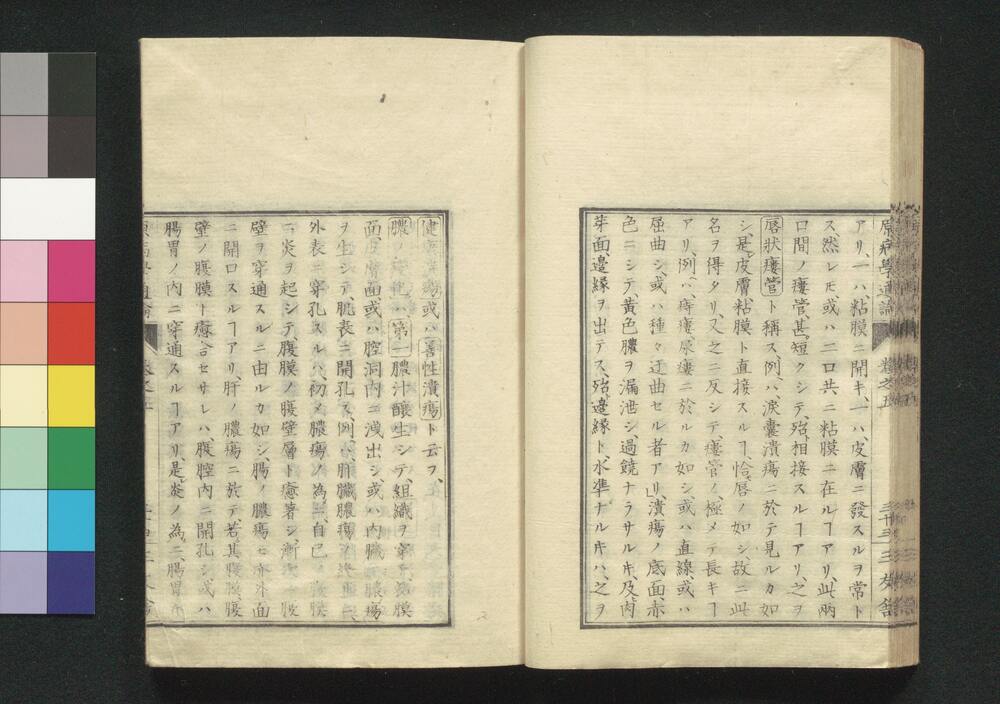 原病學通論
アリ、一ハ粘膜ニ開キ、一ハ皮膚ニ發スルヲ常ト
ス、然レ𪜈或ハ二口共ニ粘膜ニ在ルヿアリ、此兩
口間ノ瘻管、甚短クシテ、殆相接スルヿアリ、之ヲ
唇狀瘻管ト稱ス、例ハ淚囊潰瘍ニ於テ見ルカ如
シ、是皮膚粘膜ト直接スルヿ、恰唇ノ如シ、故ニ此
名ヲ得タリ、又之ニ反シテ、瘻管ノ極メテ長キヿ
アリ、例ハ痔瘻尿瘻ニ於ルカ如シ、或ハ直線或ハ
屈曲シ、或ハ種々迂曲セル者アリ」潰瘍ノ底面、赤
色ニシテ黃色膿ヲ漏泄シ、過鏡ナラサルキ、及肉
芽面邊緣ヲ出テス、殆邊緣ト水準ナルキハ、之ヲ
健 或ハ善性潰瘍ト云フ、
膿ノ ハ第一膿汁釀生シテ、組織ヲ 膜
面、皮膚面、或ハ腔洞內ニ洩出シ、或ハ內臟 膿瘍
ヲ生シテ、肌表ニ開孔ス、例ハ肝臟膿瘍ノ
外表ニ穿孔スルハ、初メ膿瘍ノ為ニ、自己ノ腹膜
ニ炎ヲ起シテ、腹膜ノ腹壁層ト癒著シ、漸次
壁ヲ穿通スルニ由ルカ如シ、腸ノ膿瘍モ亦外面
ニ開口スルヿアリ、肝ノ膿瘍ニ於テ、若其腹膜、腹
壁ノ腹膜ト癒合セサレハ、腹腔內ニ開孔シ、或ハ
腸胃ノ內ニ穿通スルヿアリ、是炎ノ為ニ、腸胃